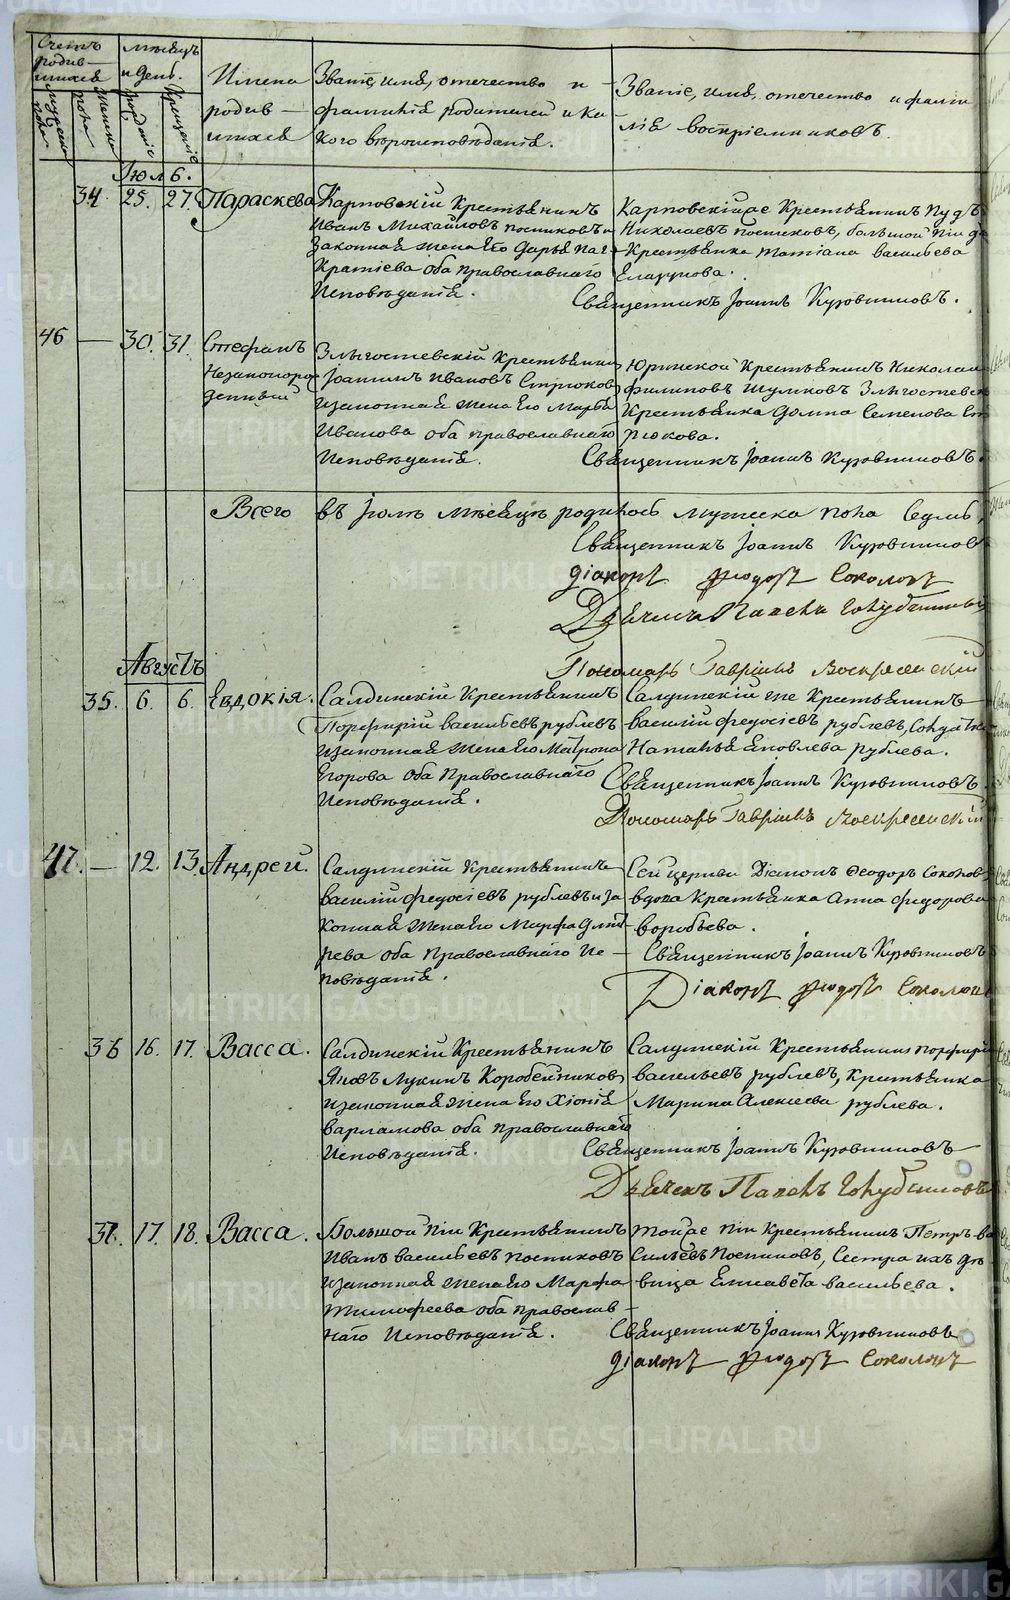 Счетъ родив-шихся
Мѣсяцъ и день.
Имена родив-шихся
Званіе, имя, отечество и фамилія родителей и какого вѣроисповѣданія.
Званіе, имя, отечество и фамилія воспріемниковъ.
Мужеска пола
Женска пола
Рожденіе
Крещеніе
Іюль.
34. 25. 27. Параскева
Карповскій Крестьянинъ
Иванъ Михайловъ Постниковъ и
Законная жена Его Дарья
оба православнаго
Исповѣданія.
Карповскіе Крестьянинъ
Николаевъ Постниковъ, большой
Крестьянка Татіана васильева
Священникъ Іоаннъ
46 — 30. 31. Стефанъ
Незаконорожденный
Крестьянинъ
Іоаннъ Ивановъ Стрюковъ
изаконная жена Его Марѳа
Иванова оба православнаго
Исповѣданія.
Крестьянинъ Николай
филиповъ Шумковъ
Крестьянка Домна Семенова Ст
рюкова.
Священникъ Іоаннъ
Всего въ Іюлѣ мѣсяцѣ родилось мужеска пола Седмь
Священникъ Іоаннъ
Діаконъ Ѳеодоръ Соколовъ
Дьячекъ Павелъ
Пономарь Гавріилъ Воскресенскій
Августъ
35. 6. 6. Евдокія.
Салдинскій Крестьянинъ
Порфирій васильевъ рублевъ
изаконная жена Его Матрона
Егорова оба Православнаго
Исповѣданія.
Салдинскій же Крестьянинъ
василій федосіевъ рублевъ,
Наталья Яковлева рублева.
Священникъ Іоаннъ
Пономарь Гавріилъ Воскресенскій
47. — 12. 13. Андрей.
Салдинскій Крестьянинъ
василій федосіевъ рублевъ и за
конная жена Его Марфа
оба Православнаго Ис-
повѣданія.
Сей церкви Діаконъ Ѳеодоръ Соколов
вдова Крестьянка Анна федорова
воробьева.
Священникъ Іоаннъ
Діаконъ Ѳеодоръ Соколовъ
36 16. 17. Васса.
Салдинскій Крестьянинъ
Яковъ Лукинъ Коробейниковъ
изаконная жена Его Хіонія
варламова оба православнаго
Исповѣданія.
Салдинскій Крестьянинъ порфирій
васильевъ рублевъ, Крестьянка
Марина Алексеева рублева.
Священникъ Іоаннъ
Дьячекъ Павелъ
37. 17. 18. Васса.
Большой Крестьянинъ
Иванъ васильевъ Постниковъ
изаконная жена Его Марфа
тимофеева оба православ-
наго Исповѣданія.
Тойже Крестьянинъ Петръ ва
сильевъ Постниковъ, Сестра ихъ дѣ
вица Елисавета васильева.
Священникъ Іоаннъ
Діаконъ Ѳеодоръ Соколовъ
METRIKI.GASO-URAL.RU